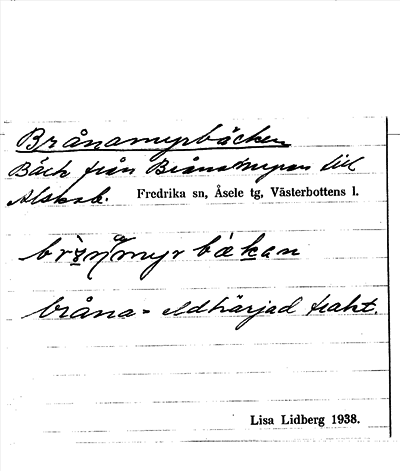 Brånamyrbäcken
Bäck från Brånamyran till
Alsksb. Fredrika sn, Åsele tg, Västerbottens l.
bäkan
bråna = eldhärjad trakt.
Lisa Lidberg 1938.